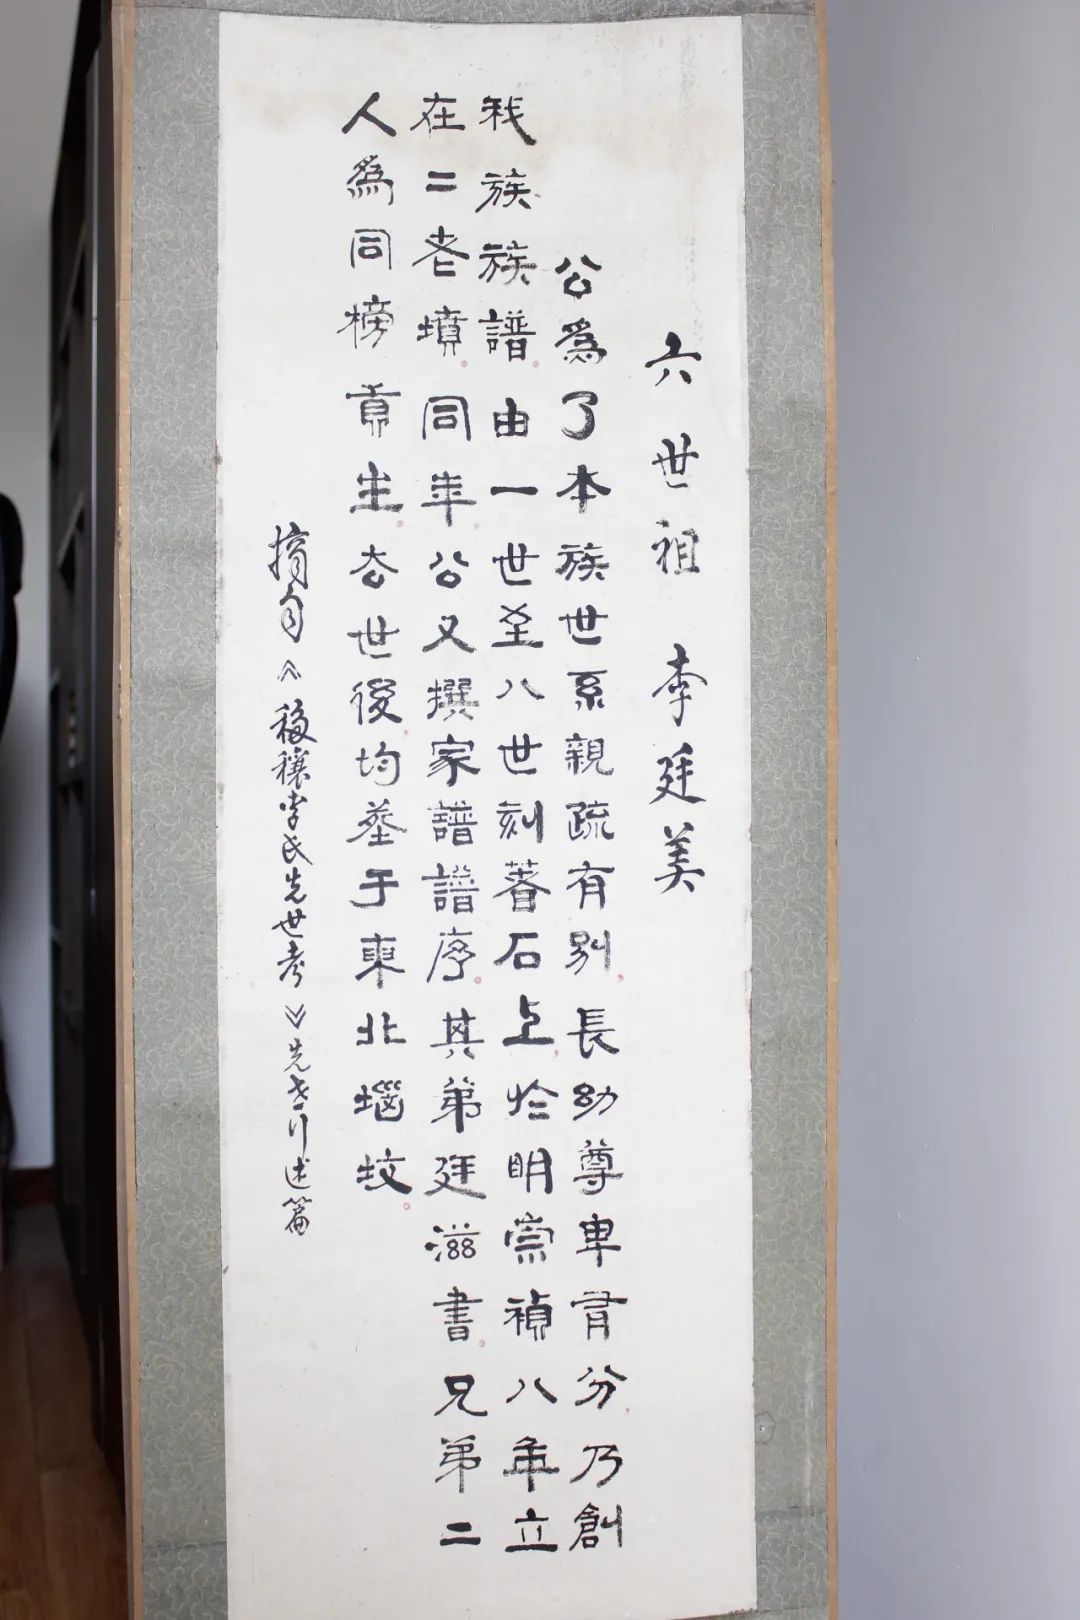 六世祖 李廷美
公為了本族世系親疏有别長幼尊卑有分乃創
我族族譜由一世至八世刻著石上於明崇禎八年立
在二老墳同年公又撰家譜譜序其弟廷滋書兄弟二
人為同榜貢生去世後均葬于東北堖坟
摘自《稷穰李氏先世考》先考行述篇